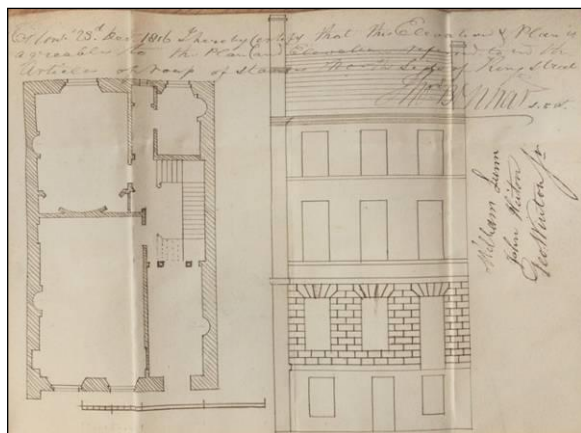 23d. Dec 1816 I hereby certify that this Elevation & Plan is
agreeable to the Plan and Elevation referred to in the
Articles of roup of stances North Side of King Street
William Lunn
John Winton
Geo Winton Jr